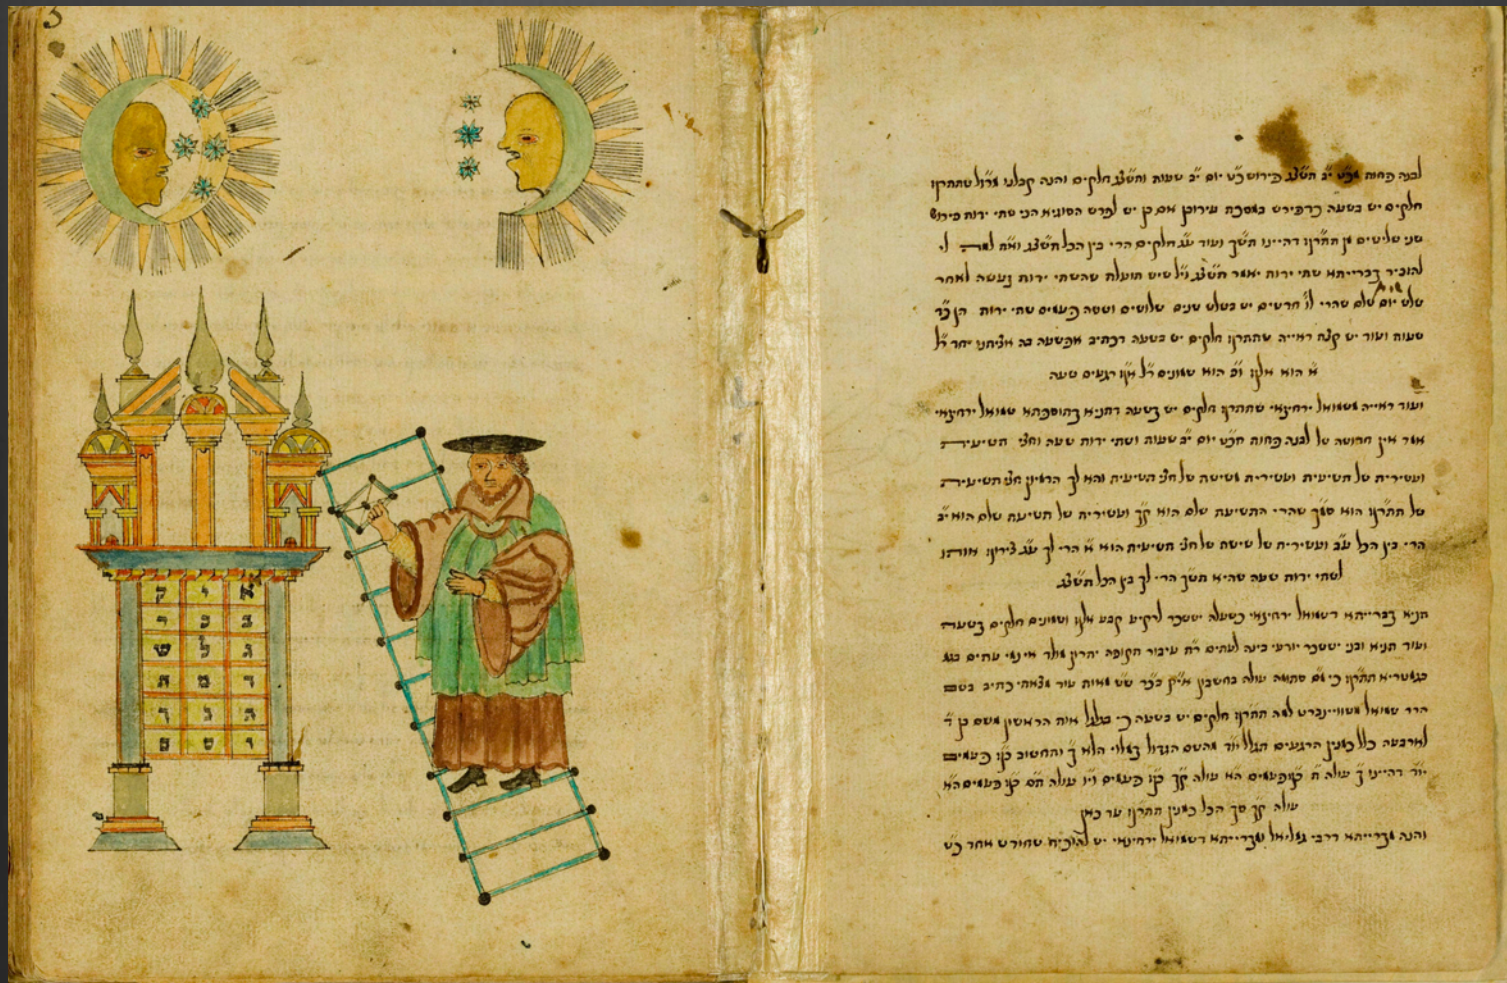 לבנה פחות מכ״ט י״ב תשצ״ג פירוש כ״ט יום י״ב שעות ותשצ״ג חלקים והנה קבלנו מרז״ל שתתר״ף
חלקים יש בשעה כדפירש במסכת עירובין אם כן יש לפרש הסוגיא הכי שתי ידות פירוש
שני שלישים מן תתר״ף דהיינו תש״ך ועוד ע״ג חלקים הרי בין הכל תשצ״ג וא״ת למה לי
להזכיר בברייתא שתי ידות יאמר תשצ״ג וי״ל שיש תועלת שהשתי ידות נעשה לאחר
שלש יום שלם שהרי ל״ו חדשים יש בשלש שנים שלושים וששה פעמים שתי ידות הן כ״ד
שעות ועוד יש קצת ראייה שתתר״ף חלקים יש בשעה דכתיב יחד ר״ל
א׳ הוא אלף ופ׳ הוא שמונים ר״ל א״ף רגעים שעה
ועוד ראייה משמואל ירחינאי שתתר״ף חלקים יש בשעה דתניא בתוספתא שמואל ירחינאי
אמר אין חדושה של לבנה פחות מכ״ט יום י״ב שעות ושתי ידות שעה וחצי תשיעית
ועשירית של תשיעית ועשירית משישה של חצי תשיעית והא לך הראיון חצי תשיעית
של תתר״ף הוא שהרי התשיעית שלם הוא ק״ך ועשירית של תשיעית שלם הוא י״ב
הרי בין הכל ע״ב ועשירית של שישה של חצי תשיעית הוא א׳ הרי לך ע״ג צירוף אותו
לשתי ידות שעה שהיא תש״ך הרי לך בין הכל תשצ״ג
תניא בברייתא דשמואל ירחינאי כשעלה יששכר לרקיע קבע אלף ושמונים חלקים בשעה
ועוד תניא ובני יששכר יודעי בינה לעתים ר״ת עיבור תקופה יתרון מולד אינמי עתים בגמ
בגמטריא תתר״ף כי ם סתומה עולה בחשבון אי״ק בכ״ר מאות עוד מצאתי כתיב בשם
הרר שמואל למה תתר״ף חלקים יש בשעה כי אות הראשון משם בן ד׳
לארבעה כלל כמנין הרגעים תגלגל יו״ד מהשם הגדול במלוי הלא ך׳ ותחשוב כ״ו פעמים
יו״ד דהיינו ך׳ עולה פעמים ה״א עולה ק״ך פעמים וי״ו עולה פעמים ה״א
עולה ק״ך סך הכל כמנין תתר״ף עד כאן
והנה מברייתא דרבי גמליאל ומברייתא דשמואל ירחינאי יש להוכיח שחודש אחר כ״ט
א י ק
ב כ ר
ג ל ש
ד מ ת
ה נ ך
ו ס ם